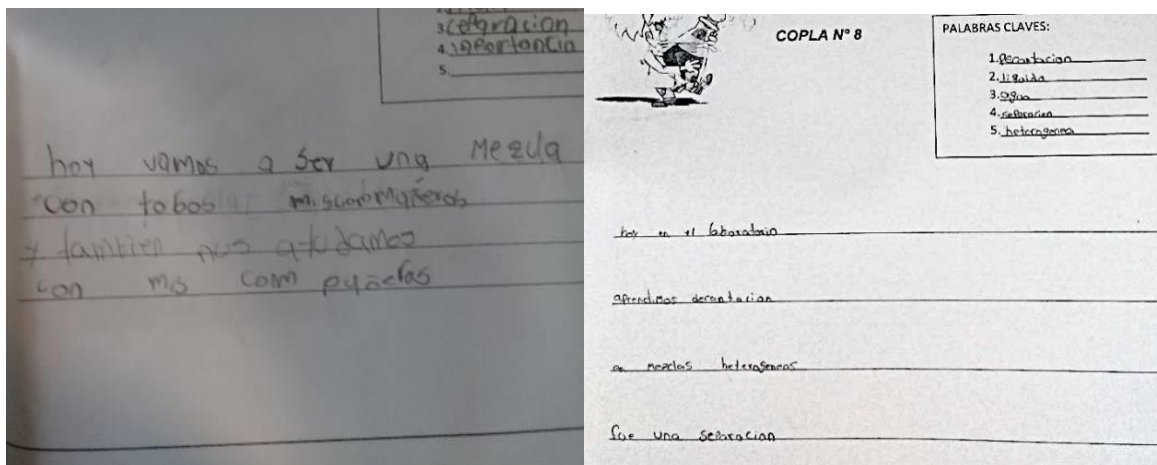 3. separacion
4. inportancia
5.
hoy vamos a ser una Mezcla
con tobos miscompañeros
y tambien nos ayudamos
con mis com pañeras
COPLA N° 8
PALABRAS CLAVES:
1. Decantacion
2. liquido
3. agua
4. separacion
5. heterogenea
hoy en el laboratorio
aprendimos decantacion
en mezclas heterogeneas
fue una separacion